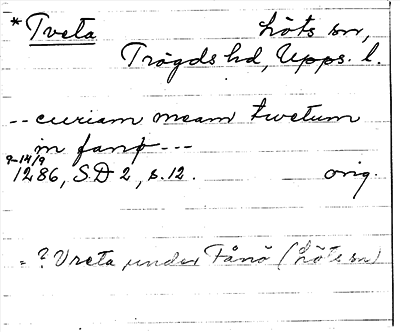 *Tveta Löts sn,
Trögds hd, Upps. l.
-- curiam meam twetum
in fanþ ---
9-14/9
1286, SD 2, s. 12. orig.
= ? Vreta under Fånö (Löts sn)